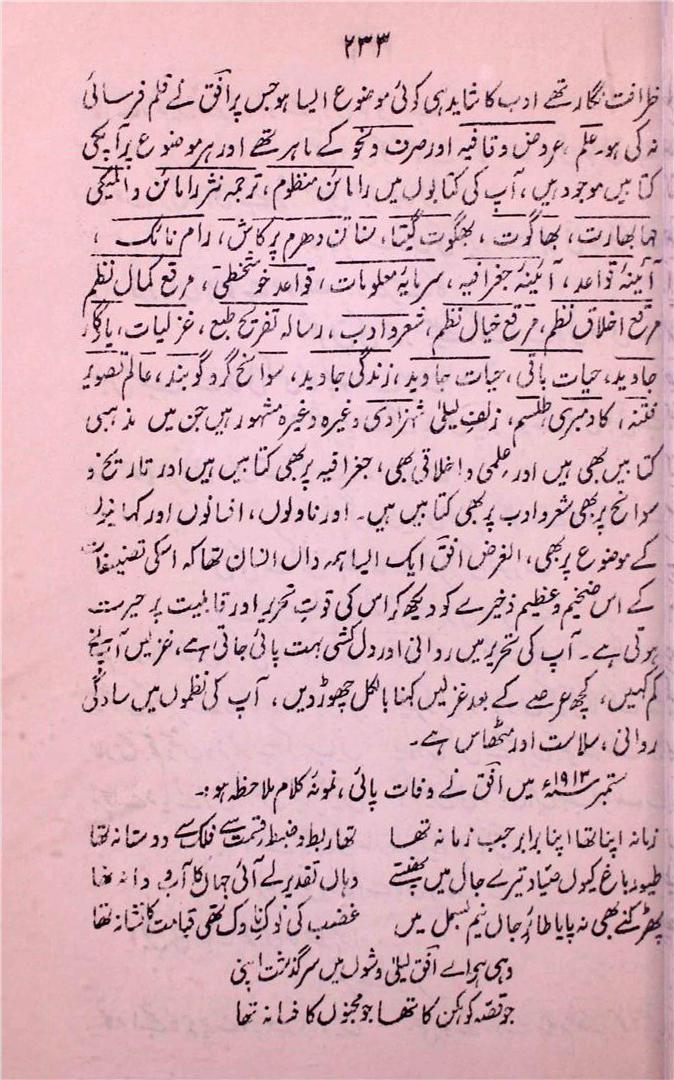 ۲۳۳
ظرافت نگار تھے ادب کا شاید ہی کوئی موضوع ایسا ہو جس پر افق نے قلم فرسائی
نہ کی ہو۔ علم عروض و قافیہ اور صرف و نحو کے ماہر تھے اور ہر موضوع پر آپکی
کتابیں موجود ہیں، آپ کی کتابوں میں رامائن منظوم، ترجمہ نثر رامائن والمیکی
مہابھارت، بھاگوت، بھگوت گیتا، سناتن دھرم پرکاش، رام ناٹک،
آئینۂ قواعد، آئینۂ جغرافیہ، سرمایۂ معلومات، قواعد خوشخطی، مرقع کمال نظم
مرقع اخلاق نظم، مرقع خیال نظم، شعر و ادب، رسالہ تفریح طبع، غزلیات، یادگار
جاوید، حیات باقی، حیات جاوید، زندگی جاوید، سوانح گرو گوبند، عالم تصویر
فتنہ، کادمبری طلسم، زلف لیلیٰ شہزادی وغیرہ وغیرہ مشہور ہیں جن میں مذہبی
کتابیں بھی ہیں اور علمی و اخلاقی بھی، جغرافیہ پر بھی کتابیں ہیں اور تاریخ و
سوانح پر بھی شعر و ادب پر بھی کتابیں ہیں۔ اور ناولوں، افسانوں اور کہانیوں
کے موضوع پر بھی، الغرض افق ایک ایسا ہمہ داں انسان تھا کہ اسکی تصنیفات
کے اس ضخیم و عظیم ذخیرے کو دیکھ کر اس کی قوتِ تحریر اور قابلیت پر حیرت
ہوتی ہے۔ آپ کی تحریر میں روانی اور دل کشی بہت پائی جاتی ہے، غزلیں آپنے
کم کہیں، کچھ عرصے کے بعد غزلیں کہنا بالکل چھوڑ دیں، آپ کی نظموں میں سادگی
روانی، سلاست اور مٹھاس ہے۔
ستمبر ۱۹۱۳ء میں افق نے وفات پائی، نمونۂ کلام ملاحظہ ہو:۔
زمانہ اپنا تھا اپنا برابر جب زمانہ تھا تھا ربط و ضبط قسمت سے فلک سے دوستانہ تھا
طیور باغ کیوں صیاد تیرے جال میں پھنستے وہاں تقدیر لے آئی جہاں کا آب و دانہ تھا
پھڑکنے بھی نہ پایا طائرِ جاں نیم بسمل میں غضب کی نوکِ ناوک تھی قیامت کا نشانہ تھا
وہی ہے اے افق لیلیٰ وشوں میں سرگذشت اپنی
جو قصہ کوہکن کا تھا جو مجنوں کا فسانہ تھا